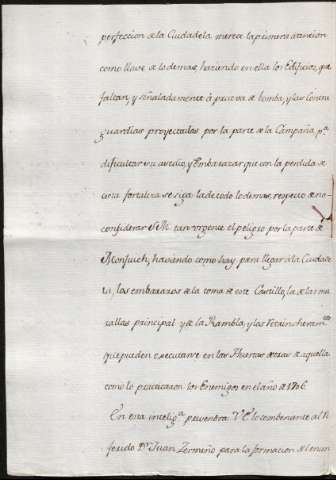 perfeccion de la Ciudadela merece la primera atencion
como llave de lo demas, haziendo en ella los Edificios, que
faltan, y señaladamente â prueva de bomba, y las Contra
guardias proyectadas por la parte de la Campaña, pª
dificultar su asedio, y embarazar, que con la perdida de
esta fortaleza se siga la de todo lo demas, respecto de no
considerar S. M. tan urgente el peligro por la parte de
Monjuich; haviendo como hay para llegar â la Ciudade
la, los embarazos de la toma de este Castillo, la de las mu
rallas principal y de la Rambla, y los Atrincheram.tos
que pueden executarse en las Huertas detras de aquella
como lo practicaron los Enemigos en el año de 1706.
En esta intelig.ª prevendra V.E. lo combeniente al R
ferido Dn. Juan Zermeño para la formacion del enun